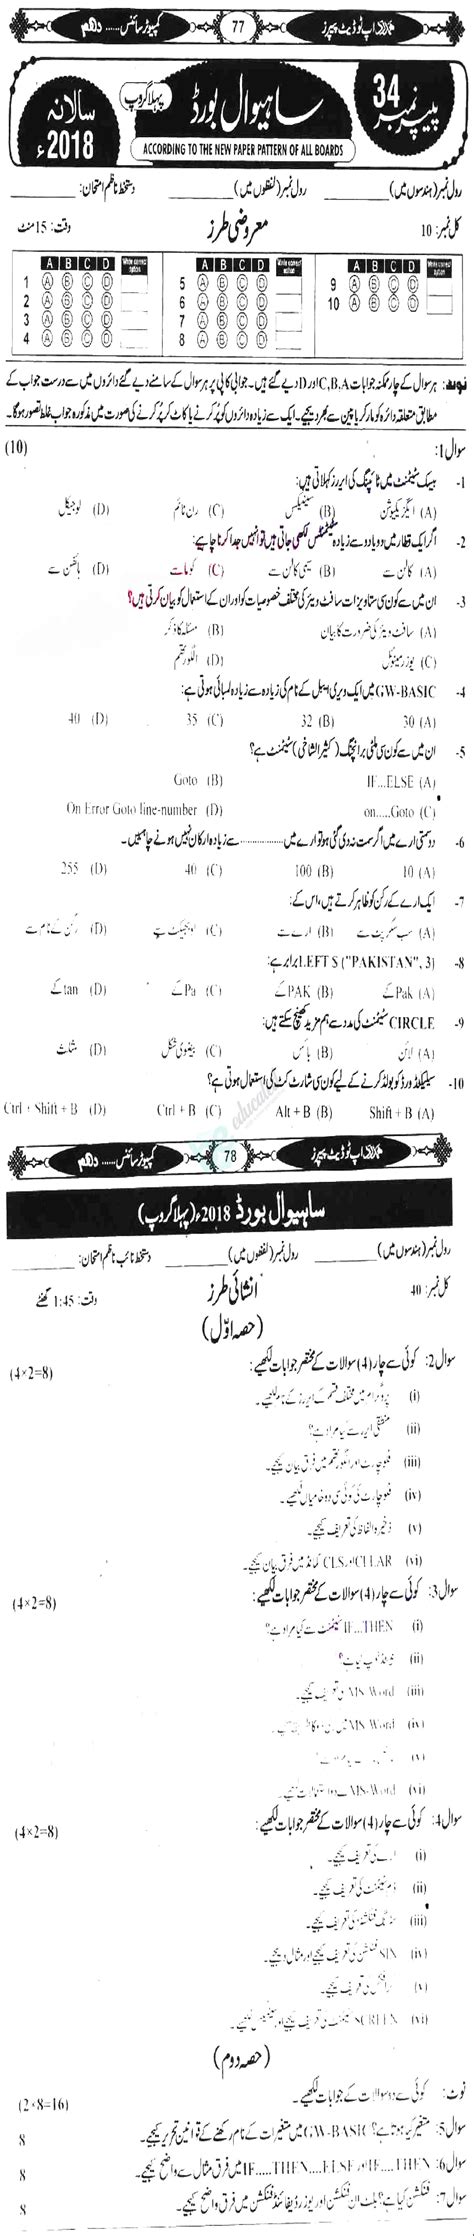 کمپیوٹر سائنس ...... دہم 77 ہمدرد اپ ٹو ڈیٹ پیپرز
سالانہ 2018ء پہلا گروپ ساہیوال بورڈ پیپر نمبر 34
ACCORDING TO THE NEW PAPER PATTERN OF ALL BOARDS
رول نمبر (ہندسوں میں) رول نمبر (لفظوں میں) دستخط ناظم امتحان:
کل نمبر: 10 معروضی طرز وقت: 15 منٹ
A B C D Write correct option A B C D Write correct option A B C D Write correct option
1 A B C D 5 A B C D 9 A B C D
2 A B C D 6 A B C D 10 A B C D
3 A B C D 7 A B C D
4 A B C D 8 A B C D
نوٹ: ہر سوال کے چار ممکنہ جوابات C,B,A اور D دیے گئے ہیں۔ جوابی کاپی پر ہر سوال کے سامنے دیے گئے دائروں میں سے درست جواب کے
مطابق متعلقہ دائرہ کو مارکر یا پین سے بھر دیجیے۔ ایک سے زیادہ دائروں کو پُر کرنے یا کاٹ کر پُر کرنے کی صورت میں مذکورہ جواب غلط تصور ہوگا۔
سوال 1: (10)
-1 بیسک سٹیٹمنٹ میں ٹائپنگ کی ایررز کہلاتی ہیں:
(A) ایگزیکیوشن (B) سینٹیکس (C) رن ٹائم (D) لوجیکل
-2 اگر ایک قطار میں دو یا دو سے زیادہ سٹیٹمنٹس لکھی جاتی ہیں تو انہیں جدا کرنا چاہیے:
(A) کالن سے (B) سیمی کالن سے (C) کوما سے (D) ہائفن سے
-3 ان میں سے کون سی دستاویزات سافٹ ویئر کی مختلف خصوصیات کو اور ان کے استعمال کو بیان کرتی ہیں؟
(A) سافٹ ویئر کی ضرورت کا بیان (B) مسئلہ کا ذکر
(C) یوزر مینوئل (D) الگورتھم
-4 GW-BASIC میں ایک ویری ایبل کے نام کی زیادہ سے زیادہ لمبائی ہوتی ہے:
(A) 30 (B) 32 (C) 35 (D) 40
-5 ان میں سے کون سی ملٹی برانچنگ (کثیر الشاخی) سٹیٹمنٹ ہے؟
(A) IF...ELSE (B) Goto
(C) on.....Goto (D) On Error Goto line-number
-6 دو سمتی ارے میں اگر سمت نہ دی گئی ہو تو ارے میں .................. سے زیادہ ارکان نہیں ہونے چاہییں۔
(A) 10 (B) 100 (C) 40 (D) 255
-7 ایک ارے کے رکن کو ظاہر کرتے ہیں، اس کے:
(A) سب سکرپٹ سے (B) ارے سے (C) اوبجیکٹ سے (D) رکن کے نام سے
-8 LEFT $ ("PAKISTAN", 3) برابر ہے:
(A) Pak کے (B) PAK کے (C) Pa کے (D) tan کے
-9 CIRCLE سٹیٹمنٹ کی مدد سے ہم مزید کھینچ سکتے ہیں:
(A) لائن (B) باکس (C) بیضوی شکل (D) مثلث
-10 سیلیکٹڈ ورڈ کو بولڈ کرنے کے لیے کون سی شارٹ کٹ کی استعمال ہوتی ہے؟
(A) Shift + B (B) Alt + B (C) Ctrl + B (D) Ctrl + Shift + B
کمپیوٹر سائنس ...... دہم 78 ہمدرد اپ ٹو ڈیٹ پیپرز
ساہیوال بورڈ 2018ء (پہلا گروپ)
رول نمبر (ہندسوں میں) رول نمبر (لفظوں میں) دستخط نائب ناظم امتحان:
کل نمبر: 40 انشائی طرز وقت: 1:45 گھنٹے
(حصہ اوّل)
سوال 2: کوئی سے چار (4) سوالات کے مختصر جوابات لکھیے: (4×2=8)
(i) پروگرام میں مختلف قسم کے ایررز کے نام لکھیے۔
(ii) منطقی ایرر سے کیا مراد ہے؟
(iii) فلو چارٹ اور الگورتھم میں فرق بیان کیجیے۔
(iv) فلو چارٹ کی کوئی سی دو خامیاں لکھیے۔
(v) ذخیرہ الفاظ کی تعریف کیجیے۔
(vi) CLEAR اور CLS کمانڈ میں فرق بیان کیجیے۔
سوال 3: کوئی سے چار (4) سوالات کے مختصر جوابات لکھیے: (4×2=8)
(i) IF...THEN سٹیٹمنٹ سے کیا مراد ہے؟
(ii) نیسٹڈ لوپ کیا ہے؟
(iii) MS-Word کی تعریف کیجیے۔
(iv) MS-Word میں
(v)
(vi) MS-Word کے دو استعمالات لکھیے۔
سوال 4: کوئی سے چار (4) سوالات کے مختصر جوابات لکھیے: (4×2=8)
(i) ارے کی تعریف کیجیے۔
(ii) ڈم سٹیٹمنٹ کی تعریف کیجیے۔
(iii) سٹرنگ فنکشنز کی تعریف کیجیے۔
(iv) SIN فنکشن کی تعریف کیجیے اور مثال دیجیے۔
(v) گرافکس کی تعریف کیجیے۔
(vi) SCREEN سٹیٹمنٹ کی تعریف کیجیے اور سینٹیکس لکھیے۔
(حصہ دوم)
نوٹ: کوئی سے دو سوالات کے جوابات لکھیے۔ (2×8=16)
سوال 5: متغیر کیا ہوتا ہے؟ GW-BASIC میں متغیرات کے نام رکھنے کے قوانین تحریر کیجیے۔ 8
سوال 6: IF...THEN اور IF.....THEN....ELSE میں فرق مثال سے واضح کیجیے۔ 8
سوال 7: فنکشن کیا ہے؟ بلٹ ان فنکشن اور یوزر ڈیفائنڈ فنکشن میں فرق واضح کیجیے۔ 8